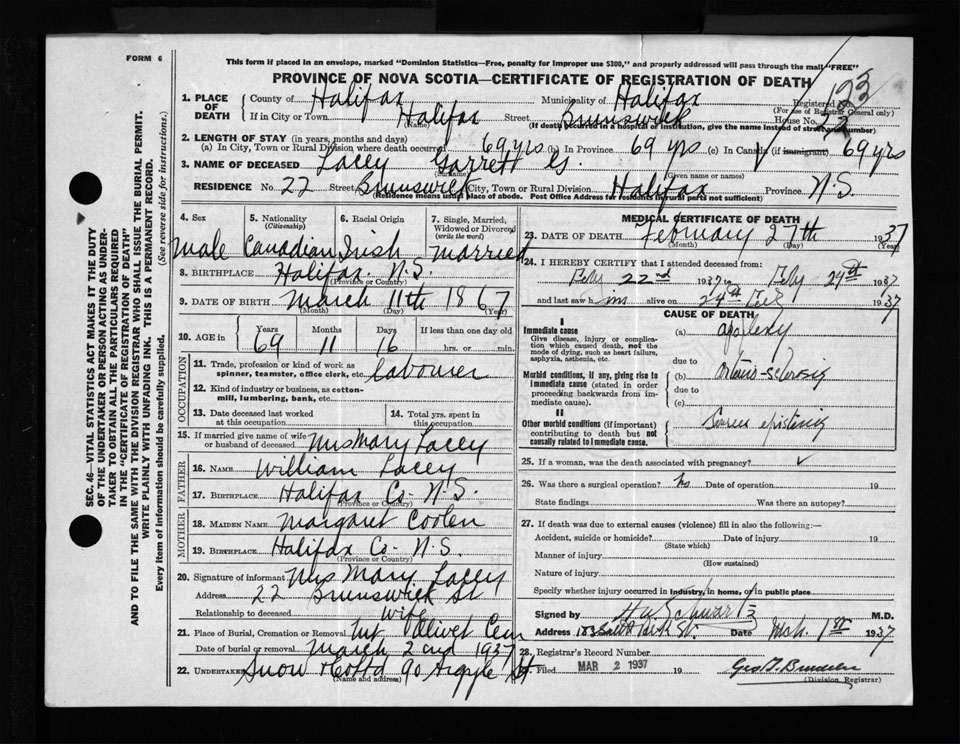 FORM 6
This form if placed in an envelope, marked "Dominion Statistics—Free, penalty for improper use $300," and properly addressed will pass through the mail "FREE"
PROVINCE OF NOVA SCOTIA—CERTIFICATE OF REGISTRATION OF DEATH
SEC. 46—VITAL STATISTICS ACT MAKES IT THE DUTY
OF THE UNDERTAKER OR PERSON ACTING AS UNDER-
TAKER TO OBTAIN ALL THE PARTICULARS REQUIRED
IN THE "CERTIFICATE OF REGISTRATION OF DEATH"
AND TO FILE THE SAME WITH THE DIVISION REGISTRAR WHO SHALL ISSUE THE BURIAL PERMIT.
WRITE PLAINLY WITH UNFADING INK. THIS IS A PERMANENT RECORD.
Every item of information should be carefully supplied. (See reverse side for instructions.)
1. PLACE OF DEATH County of Halifax Municipality of Halifax Registered No. 123
(For use of Registrar General only)
If in City or Town Halifax Street Brunswick House No. 22
(Name) (If death occurred in a hospital or institution, give the name instead of street and number)
2. LENGTH OF STAY (in years, months and days)
(a) In City, Town or Rural Division where death occurred 69 yrs (b) In Province 69 yrs (c) In Canada (if immigrant) 69 yrs
3. NAME OF DECEASED Lacey Garrett G.
(Surname) (Given name or names)
RESIDENCE No. 22 Street Brunswick City, Town or Rural Division Halifax Province N.S.
(Residence means usual place of abode. Post Office Address for residents in rural parts not sufficient)
4. Sex 5. Nationality (Citizenship) 6. Racial Origin 7. Single, Married, Widowed or Divorced (write the word)
Male Canadian Irish Married
8. BIRTHPLACE Halifax. N.S.
(Province or Country)
9. DATE OF BIRTH March 11th 1867
(Month) (Day) (Year)
10. AGE in Years 69 Months 11 Days 16 If less than one day old hrs. or min.
OCCUPATION
11. Trade, profession or kind of work as spinner, teamster, office clerk, etc. Labourer
12. Kind of industry or business, as cotton-mill, lumbering, bank, etc.
13. Date deceased last worked at this occupation
14. Total yrs. spent in this occupation
15. If married give name of wife or husband of deceased Mrs Mary Lacey
FATHER
16. NAME William Lacey
17. BIRTHPLACE Halifax Co- N.S.
(Province or Country)
MOTHER
18. MAIDEN NAME Margaret Coolen
19. BIRTHPLACE Halifax Co- N.S.
(Province or Country)
20. Signature of informant Mrs Mary Lacey
Address 22 Brunswick St
Relationship to deceased wife
21. Place of Burial, Cremation or Removal Mt Olivet Cem
Date of burial or removal March 2nd 1937
22. UNDERTAKER Snow & Co Ltd 90 Argyle St
(Name and address)
MEDICAL CERTIFICATE OF DEATH
23. DATE OF DEATH February 27th 1937
(Month) (Day) (Year)
24. I HEREBY CERTIFY that I attended deceased from:
Feby 22nd 1937 to Feby 27th 1937
and last saw him alive on 1937
CAUSE OF DEATH
I
Immediate cause
Give disease, injury or complication which caused death, not the mode of dying, such as heart failure, asphyxia, asthenia, etc.
(a) apoplexy
due to
Morbid conditions, if any, giving rise to immediate cause (stated in order proceeding backwards from immediate cause).
(b) Arterio-sclerosis
due to
(c)
II
Other morbid conditions (if important) contributing to death but not causally related to immediate cause.
25. If a woman, was the death associated with pregnancy?
26. Was there a surgical operation? No Date of operation 19
State findings Was there an autopsy?
27. If death was due to external causes (violence) fill in also the following:—
Accident, suicide or homicide? Date of injury 19
(State which)
Manner of injury
(How sustained)
Nature of injury
Specify whether injury occurred in industry, in home, or in public place
Signed by H.W. Schwartz M.D.
Address 183 South Park St. Date Mch. 1st 1937
28. Registrar's Record Number
Filed MAR 2 1937 19
(Division Registrar)